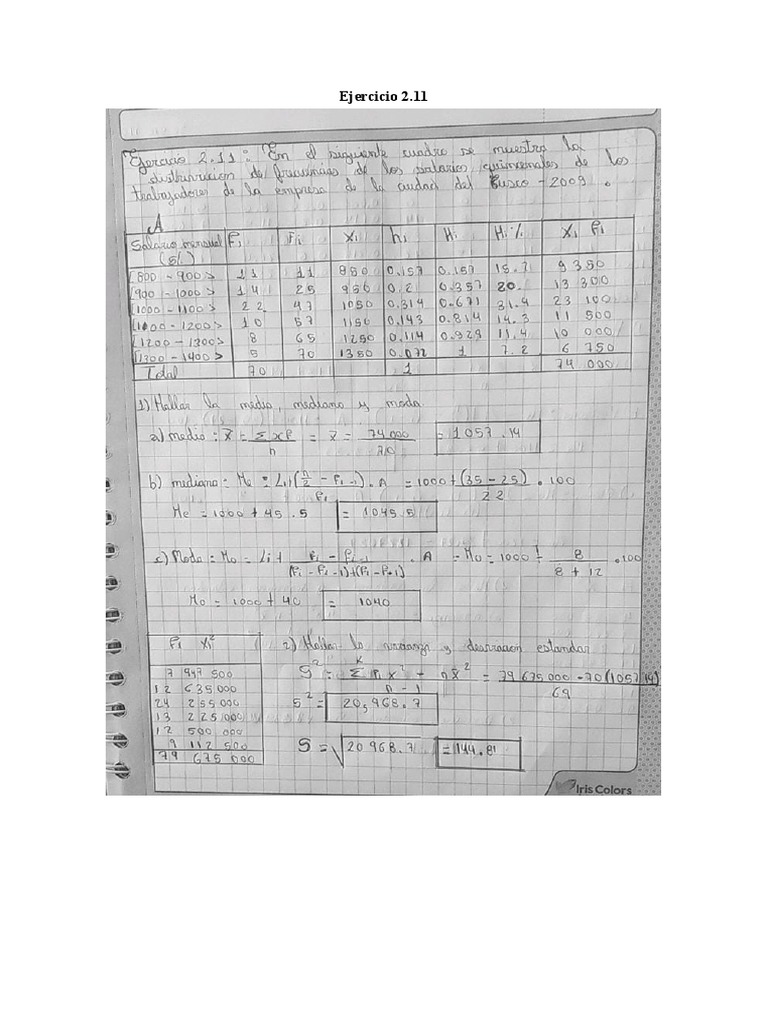 Ejercicio 2.11
Ejercicio 2.11: En el siguiente cuadro se muestra la
distribucion de frecuencias de los salarios quincenales de los
trabajadores de la empresa de la ciudad del Cusco - 2009.
A
Salario mensual (s/.) Fi Fi Xi hi Hi Hi% Xi Fi
[800 - 900> 11 11 850 0.157 0.157 15.7 9 350
[900 - 1000> 14 25 950 0.2 0.357 20. 13 300
[1000 - 1100> 22 47 1050 0.314 0.671 31.4 23 100
[1100 - 1200> 10 57 1150 0.143 0.814 14.3 11 500
[1200 - 1300> 8 65 1250 0.114 0.929 11.4 10 000
[1300 - 1400> 5 70 1350 0.072 1 7.2 6 750
Total 70 1 74 000
1) Hallar la media, mediana y moda
a) media: x̄ = Σxf/n = x̄ = 74000/70 = 1057.14
b) mediana = Me = Li+(n/2 - Fi-1)/Fi . A = 1000+(35-25)/22 . 100
Me = 1000 + 45.5 = 1045.5
c) Moda: Mo = Li+ Fi - Fi-1/(Fi - Fi-1)+(Fi-Fi+1) . A = Mo = 1000+ 8/8 + 12 .100
Mo = 1000 + 40 = 1040
Fi Xi²
7 947 500
12 635 000
24 255 000
13 225 000
12 500 000
9 112 500
79 675 000
2) Hallar la varianza y desviacion estandar
S² = ΣFi x² - nx̄²/n - 1 = 79 675 000 - 70(1057.14)/69
S² = 20,968.7
S = √20 968.7 = 144.81
Iris Colors